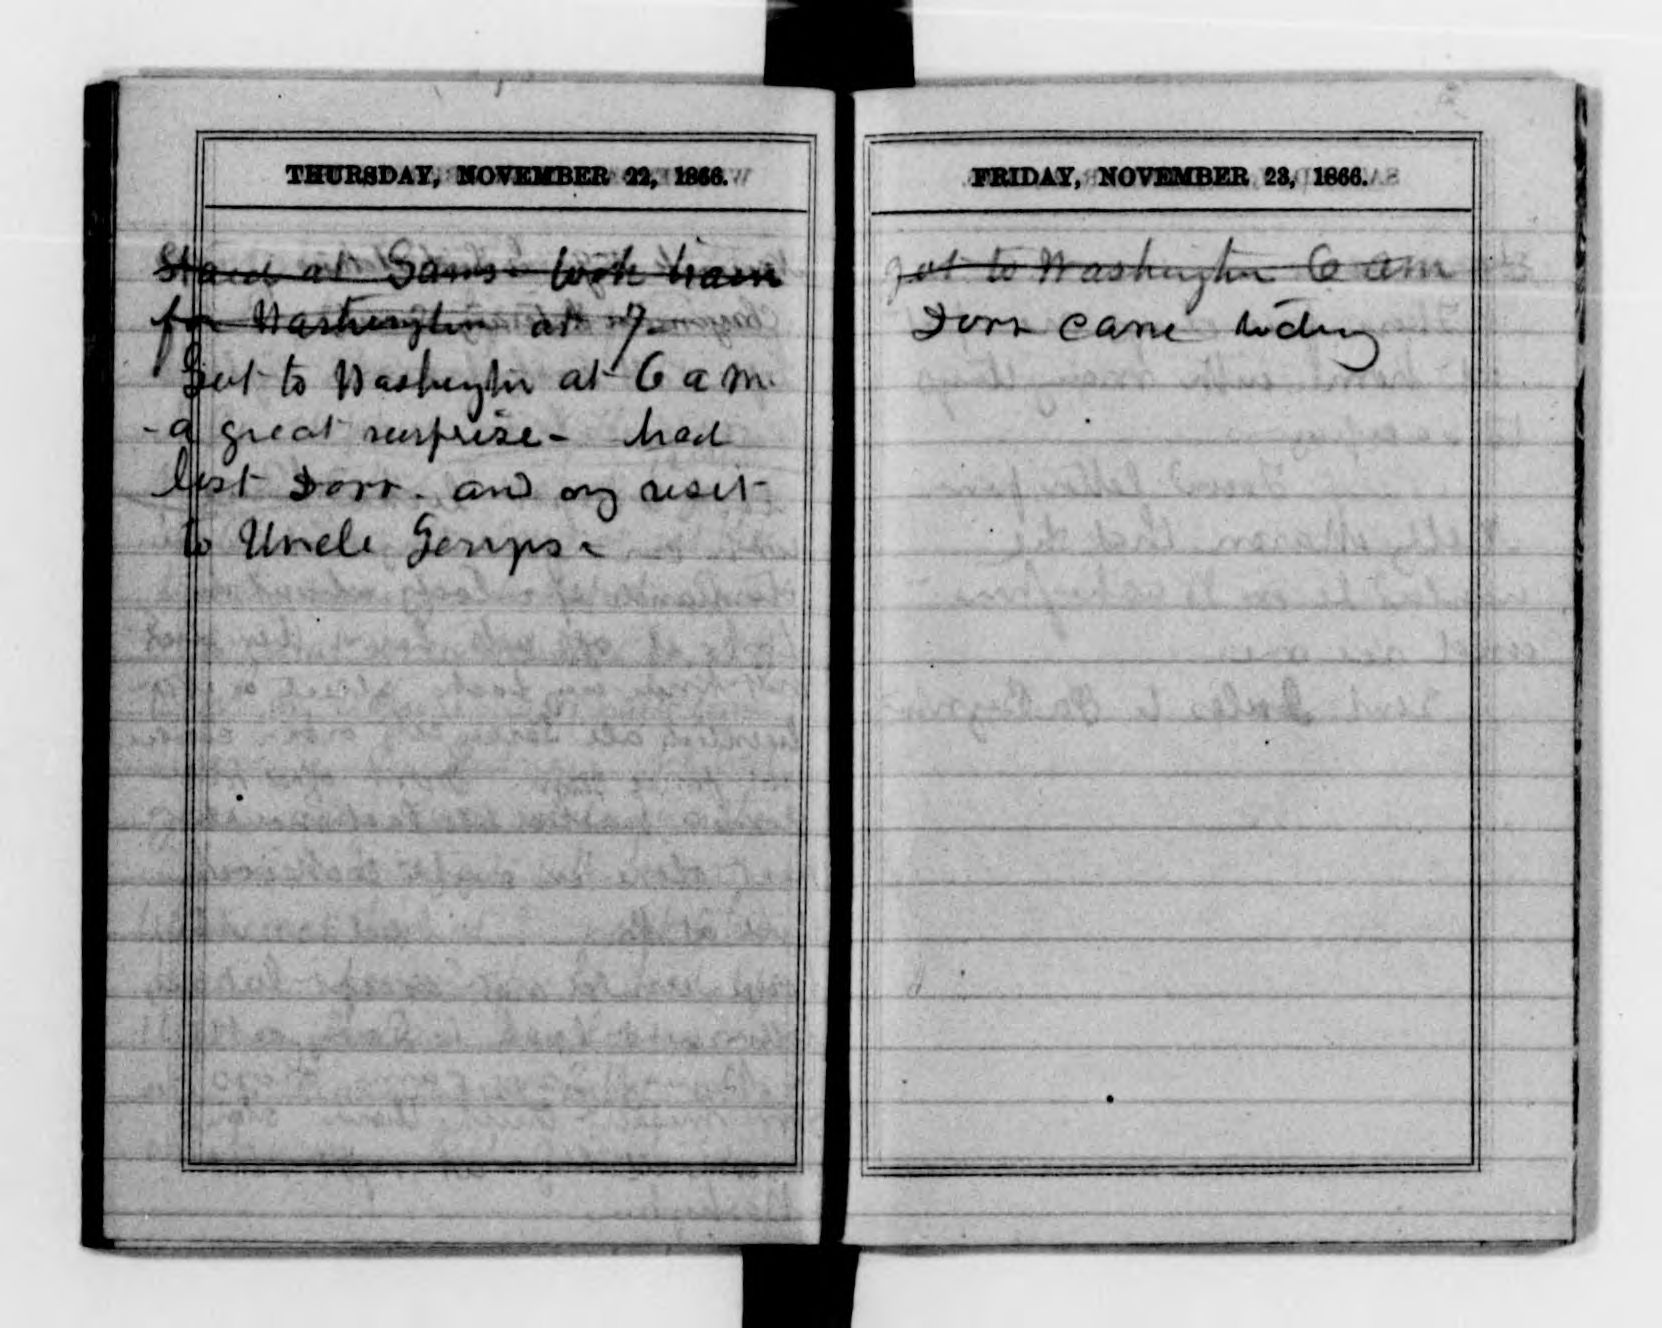 THURSDAY, NOVEMBER 22, 1866.
Staed at Sams took train
for Washington at 7.
Got to Washington at 6 a m.
- a great surprize - had
lost Dorr. and my visit
to Uncle
FRIDAY, NOVEMBER 23, 1866.
got to Washington 6 am
Dorr came today